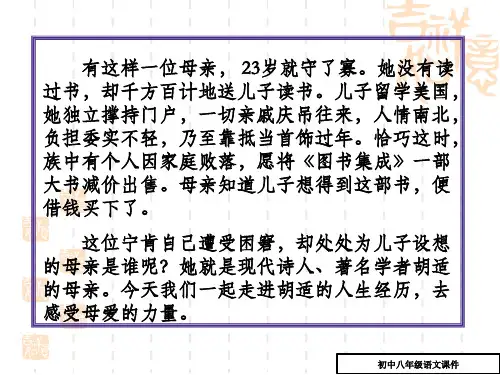 吉祥如意
有这样一位母亲，23岁就守了寡。她没有读
过书，却千方百计地送儿子读书。儿子留学美国，
她独立撑持门户，一切亲戚庆吊往来，人情南北，
负担委实不轻，乃至靠抵当首饰过年。恰巧这时，
族中有个人因家庭败落，愿将《图书集成》一部
大书减价出售。母亲知道儿子想得到这部书，便
借钱买下了。
这位宁肯自己遭受困窘，却处处为儿子设想
的母亲是谁呢？她就是现代诗人、著名学者胡适
的母亲。今天我们一起走进胡适的人生经历，去
感受母爱的力量。
初中八年级语文课件